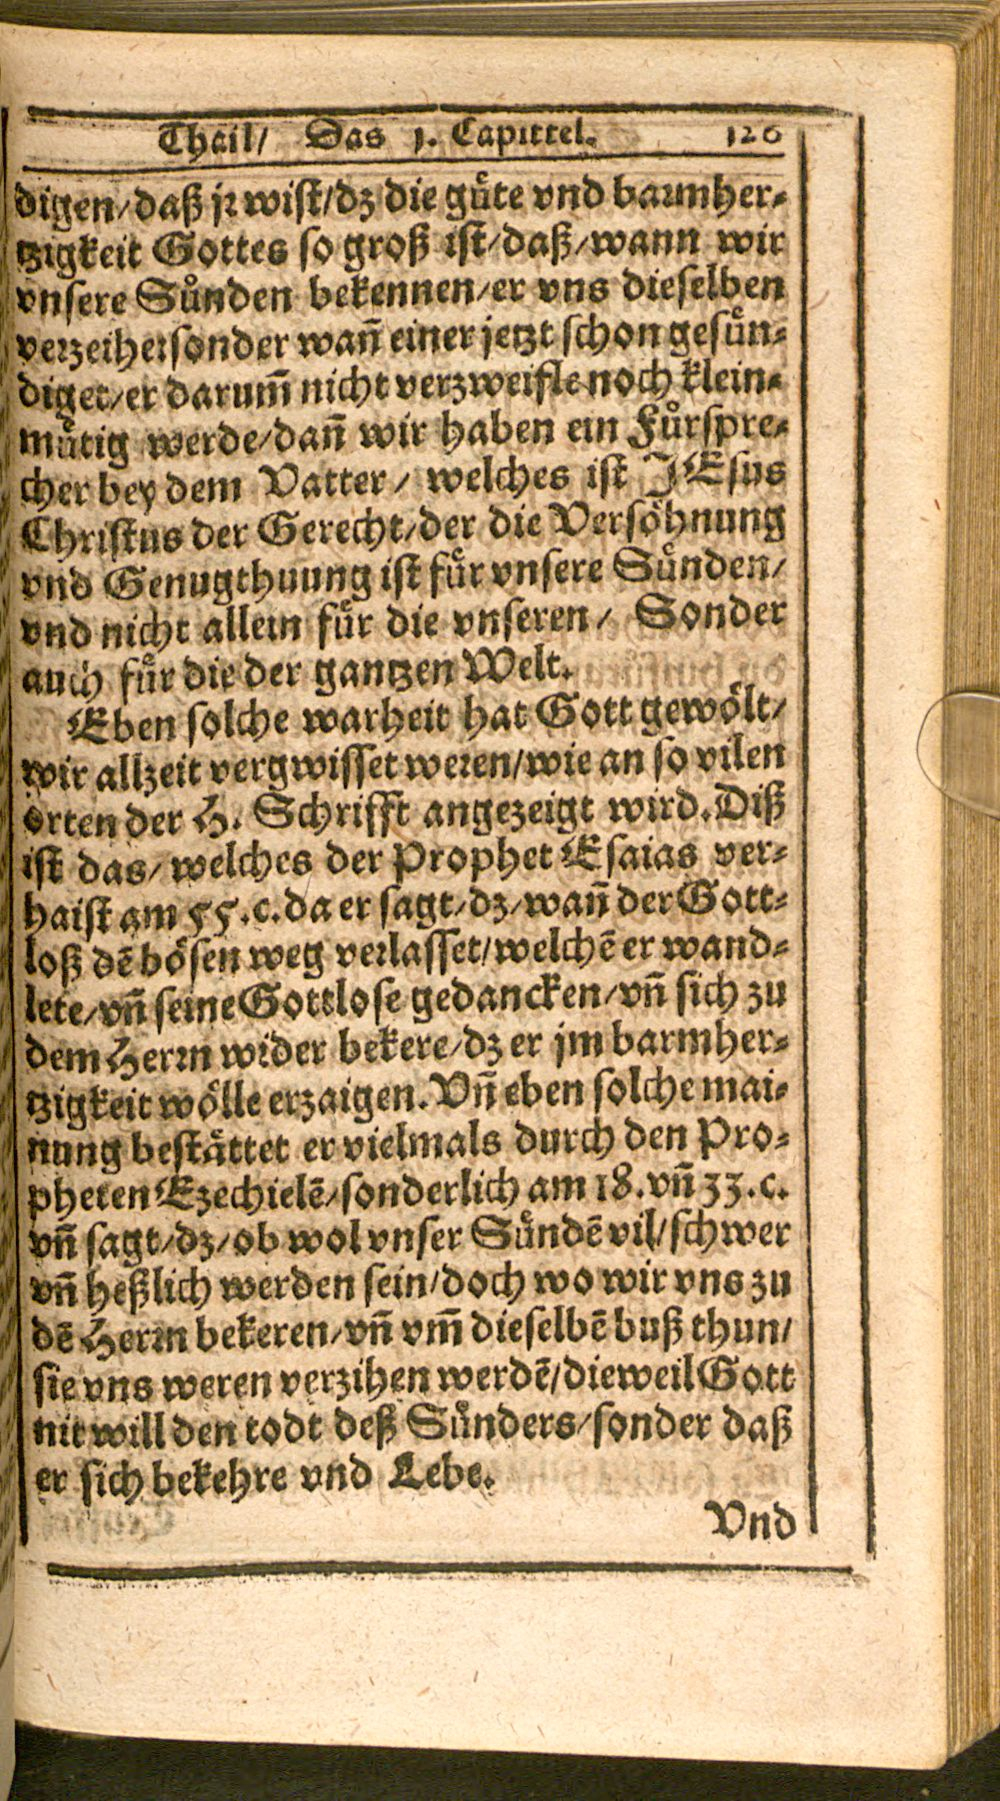 Thail/ Das 1. Capittel. 126
digen/daß jr wist/dz die guͤte vnd barmher-
tzigkeit Gottes so groß ist/daß/wann wir
vnsere Suͤnden bekennen/er vns dieselben
verzeihet sonder wañ einer jetzt schon gesuͤn-
diget/er darum̃ nicht verzweifle noch klein-
muͤtig werde/dañ wir haben ein Fuͤrspre-
cher bey dem Vatter/ welches ist JEsus
Christus der Gerecht/der die Versoͤhnung
vnd Genugthuung ist fuͤr vnsere Suͤnden/
vnd nicht allein fuͤr die vnseren/ Sonder
auch fuͤr die der gantzen Welt.
Eben solche warheit hat Gott gewoͤlt/
wir allzeit vergwisset weren/wie an so vilen
orten der H. Schrifft angezeigt wird. Diß
ist das/welches der Prophet Esaias ver-
haist am 55.c. da er sagt/dz/wañ der Gott-
loß dẽ boͤsen weg verlasset/welchẽ er wand-
lete/vñ seine Gottlose gedancken/vñ sich zu
dem Herrn wider bekere/dz er jm barmher-
tzigkeit woͤlle erzaigen. Vñ eben solche mai-
nung bestaͤttet er vielmals durch den Pro-
pheten Ezechielẽ/sonderlich am 18. vñ 33.c.
vñ sagt/dz/ob wol vnser Suͤndẽ vil/schwer
vñ heßlich werden sein/doch wo wir vns zu
dẽ Herrn bekeren/vñ vm̃ dieselbẽ buß thun/
sie vns weren verzihen werdẽ/dieweil Gott
nit will den todt deß Suͤnders/sonder daß
er sich bekehre vnd Lebe.
Vnd